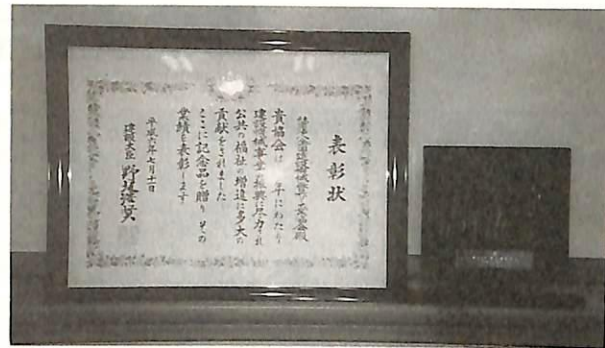 表彰状
貴協会は 年にわたり
建設機械事業の振興に尽力され
公共の福祉の増進に多大の
貢献をされました
ここに記念品を贈り その
業績を表彰します
平成六年七月十一日
建設大臣 野坂浩賢